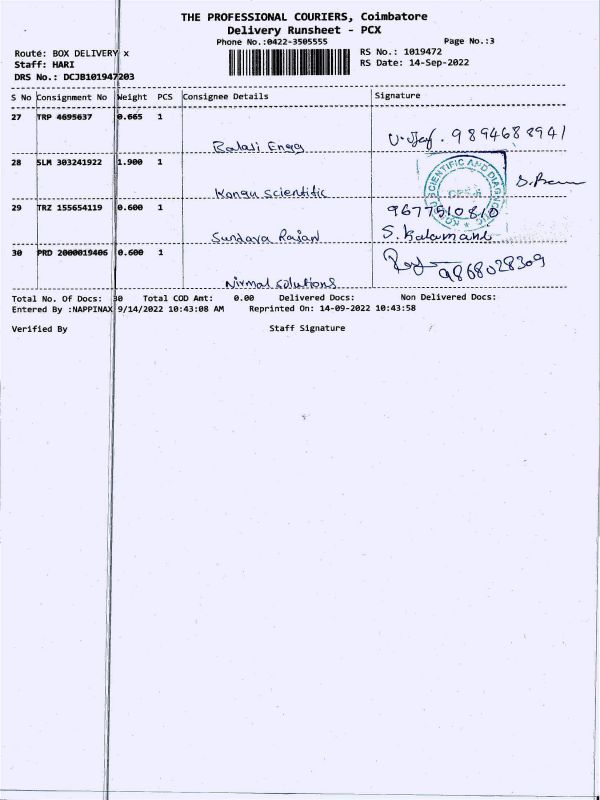 THE PROFESSIONAL COURIERS, Coimbatore
Delivery Runsheet - PCX
Phone No.:0422-3505555 Page No.:3
Route: BOX DELIVERY x RS No.: 1019472
Staff: HARI RS Date: 14-Sep-2022
DRS No.: DCJB101947203
S No Consignment No Weight PCS Consignee Details Signature
27 TRP 4695637 0.665 1
Balaji Engg 9894688941
28 SLM 303241922 1.900 1
Kangu Scientific
SCIENTIFIC AND
29 TRZ 155654119 0.600 1 9677510810
Sundara Rajan S. Kalamani
30 PRD 2000019406 0.600 1
Nirmal Solutions 9868028309
Total No. Of Docs: 30 Total COD Amt: 0.00 Delivered Docs: Non Delivered Docs:
Entered By :NAPPINAX 9/14/2022 10:43:08 AM Reprinted On: 14-09-2022 10:43:58
Verified By Staff Signature